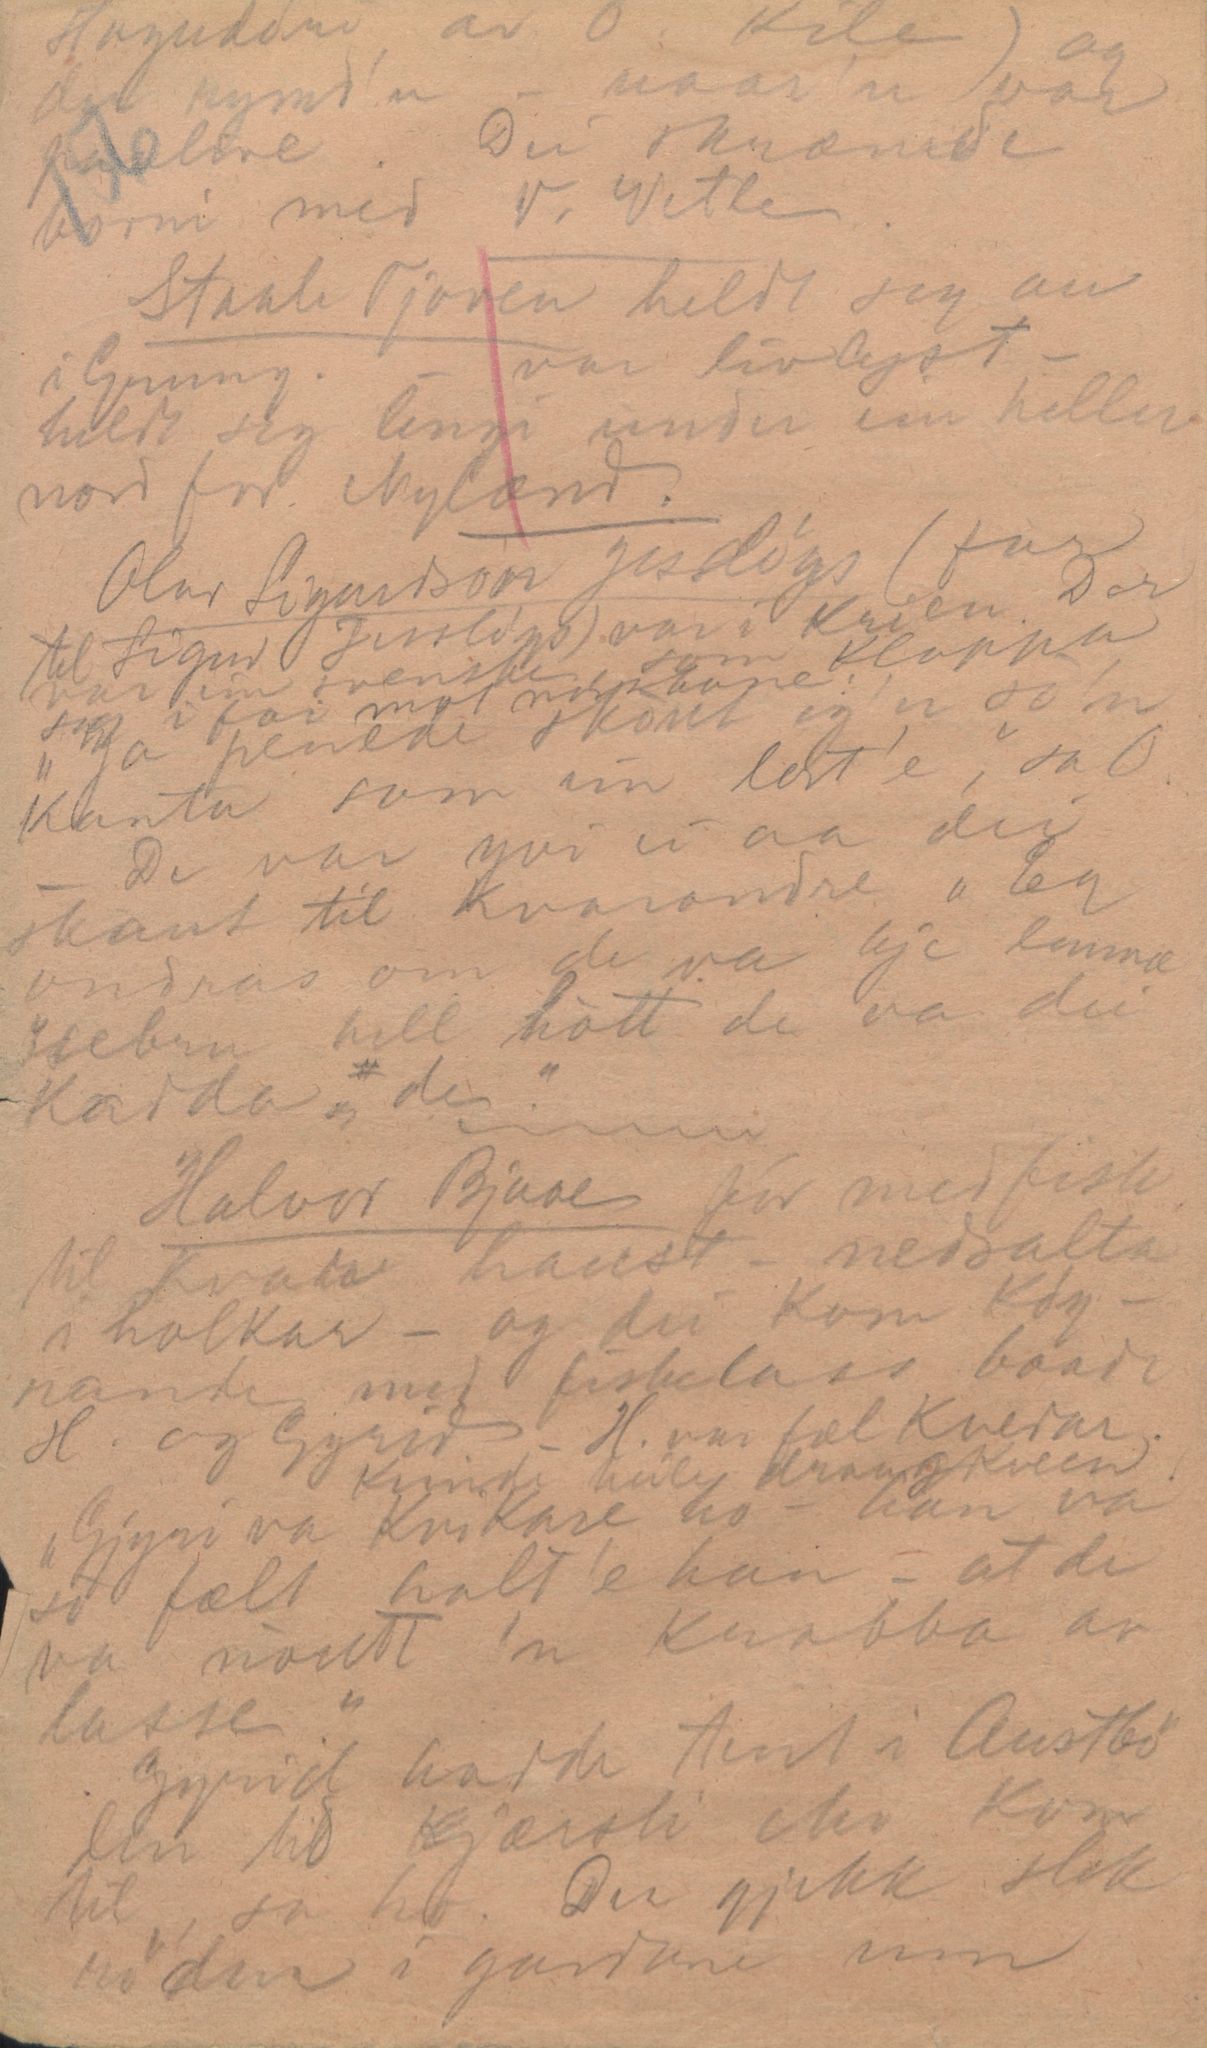 av O. Kile) og
dei rymd'n – naar'n var
Dei skræmde
borni med V. Vetle.
Staale Tjoven heldt seg au
i Grung. – var livlyst –
heldt seg lengi under ein heller
nord for Nyland.
Olav Sigurdson Jisslögs (far
til Sigurd Jisslögs) var i Krien. Der
var ein svenske som kloppa
seg i fai mot nordmenne:
"Ja penede skout eg'n so'n
Kanta som ein lort'e", sa O.
– De var yvi ei aa dei
skaut til kvarandre. "Eg
undras om de va kje lenna
hell hött de va dei
kadda de."
Halvor Bjaae för med fisk
til Kvar haust – nedsalta
i holkar – og dei kom köy-
rande med fiskelass baade
H. og Gyrid. – H. var fæl kvedar.
Kunde heile draugkveen.
"Gjyri va kvikare ho – han va
so fælt halt'e han – at de
va noudt 'n knabba av
lasse"
Gyrid hadde tent i Austbö
den tid Kjærsti Mo kom
til, sa ho. Der gjekk slik
i gardane um